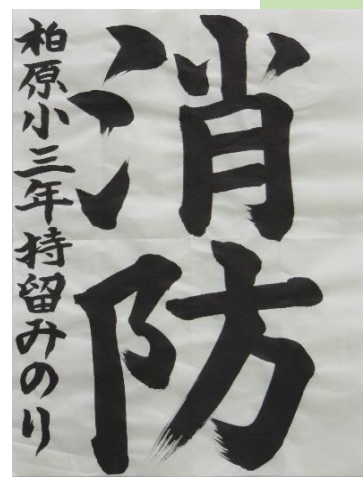 消防
柏原小三年持留みのり